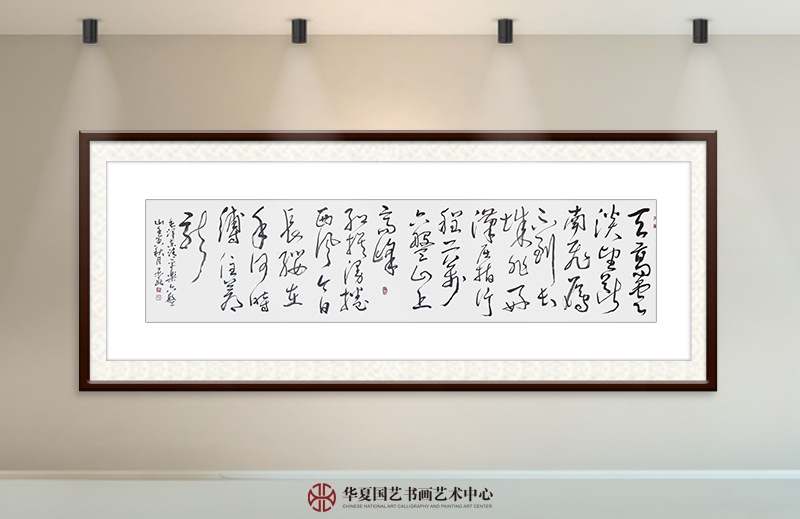 天高雲
淡望斷
南飛雁
不到长
城非好
漢屈指行
程二萬
六盤山上
高峰
紅旗漫捲
西風今日
長纓在
手何時
縛住蒼
龍
毛泽东清平樂六盤
山壬寅秋月
华夏国艺书画艺术中心
CHINESE NATIONAL ART CALLIGRAPHY AND PAINTING ART CENTER